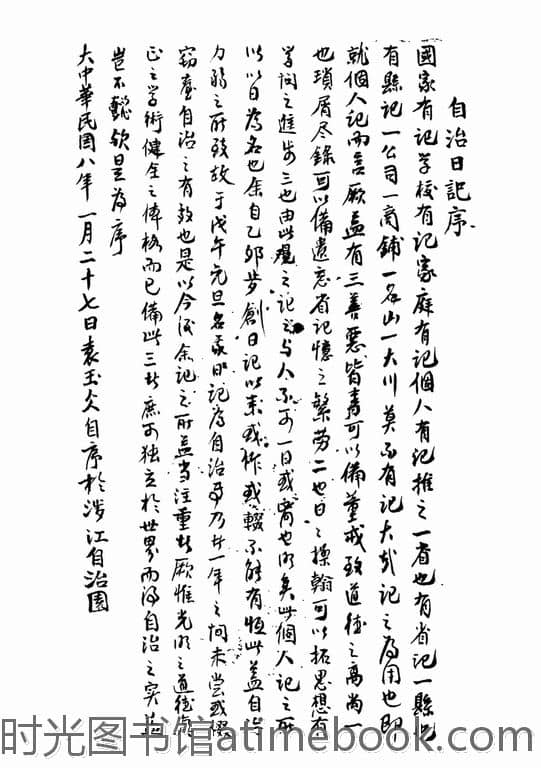 自治日記序
國家有記学校有記家庭有記個人有記推之一省也有省記一縣也
有縣記一公司一商鋪一名山一大川莫不有記大哉記之為用也即
就個人記而言厥益有三善惡皆書可以備董戒致道德之高尚一
也瑣屑尽錄可以備遺忘省記憶之繁劳二也日之操翰可以拓思想有
学问之進步三也由此觀之记之与人不可一日或離也明矣此個人記之所
以以日為名也余自乙卯步創日记以來或作或輟不能有恒此盖自治
力弱之所致故于戊午元旦名吾日記為自治乃廿一年之间未尝或輟
窃喜自治之有效也是以今後余記之所益当注重於厥惟光明之道德
正之学術健全之体格而已備此三者庶可独立於世界而得自治之实益
豈不懿欤是為序
大中華民国八年一月二十七日袁玉父自序於涉江自治園
时光图书馆atimebook.com